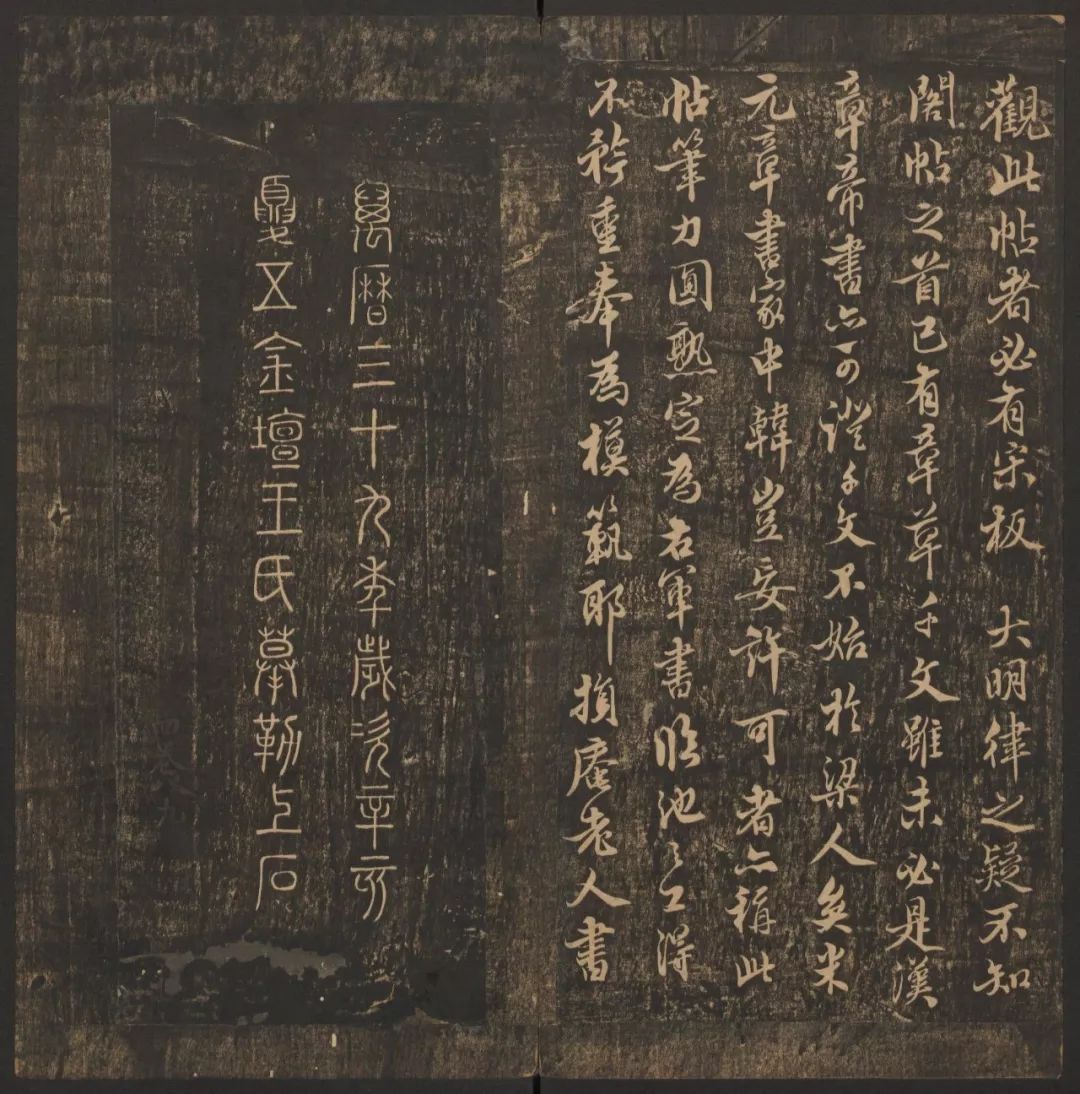 觀此帖者必有宋板 大明律之疑不知
閣帖之首已有章草千文雖未必是漢
章帝書亦可證千文不始於梁人矣米
元章書家中韓豈妄許可者亦稱此
帖筆力圓熟定為右軍書臨池之工得
不矜重奉為模範耶損庵老人書
萬曆三十九年歲次辛亥
夏五金壇王氏摹勒上石